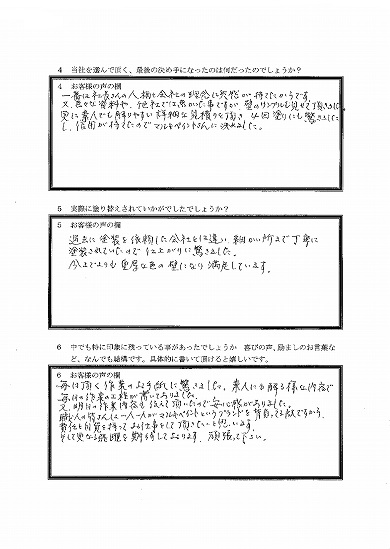 4 当社を選んで頂く、最後の決め手になったのは何だったのでしょうか？
4 お客様の声の欄
一番は社長さんの人柄と会社の理念に共感が持てたからです。
又、色々な資料や、他社では無かった事ですが、壁のサンプルも見せて頂きました
更に素人でも解りやすい詳細な見積りを頂き、4回塗りにも驚きました
し、信用が持てたのでマルキペイントさんに決めました。
5 実際に塗り替えされていかがでしたでしょうか？
5 お客様の声の欄
過去に塗装を依頼した会社とは違い、細かい所まで丁寧に
塗装されていたので仕上がりに驚きました。
今までよりも重厚な色の壁になり満足しています。
6 中でも特に印象に残っている事があったでしょうか 喜びの声、励ましのお言葉な
ど、なんでも結構です。具体的に書いて頂けると嬉しいです。
6 お客様の声の欄
毎日頂く作業のお手紙に驚きました。素人にも解る様な内容で
毎日の作業の工程が書いてありました。
又、明日の作業内容も伝えて頂いたので安心感がありました。
職人の皆さんは一人一人がマルキペイントというブランドを背負ってる訳ですから、
責任と自覚を持ってお仕事をして頂きたいと思います。
そして更なる飛躍を期待しております。頑張って下さい。